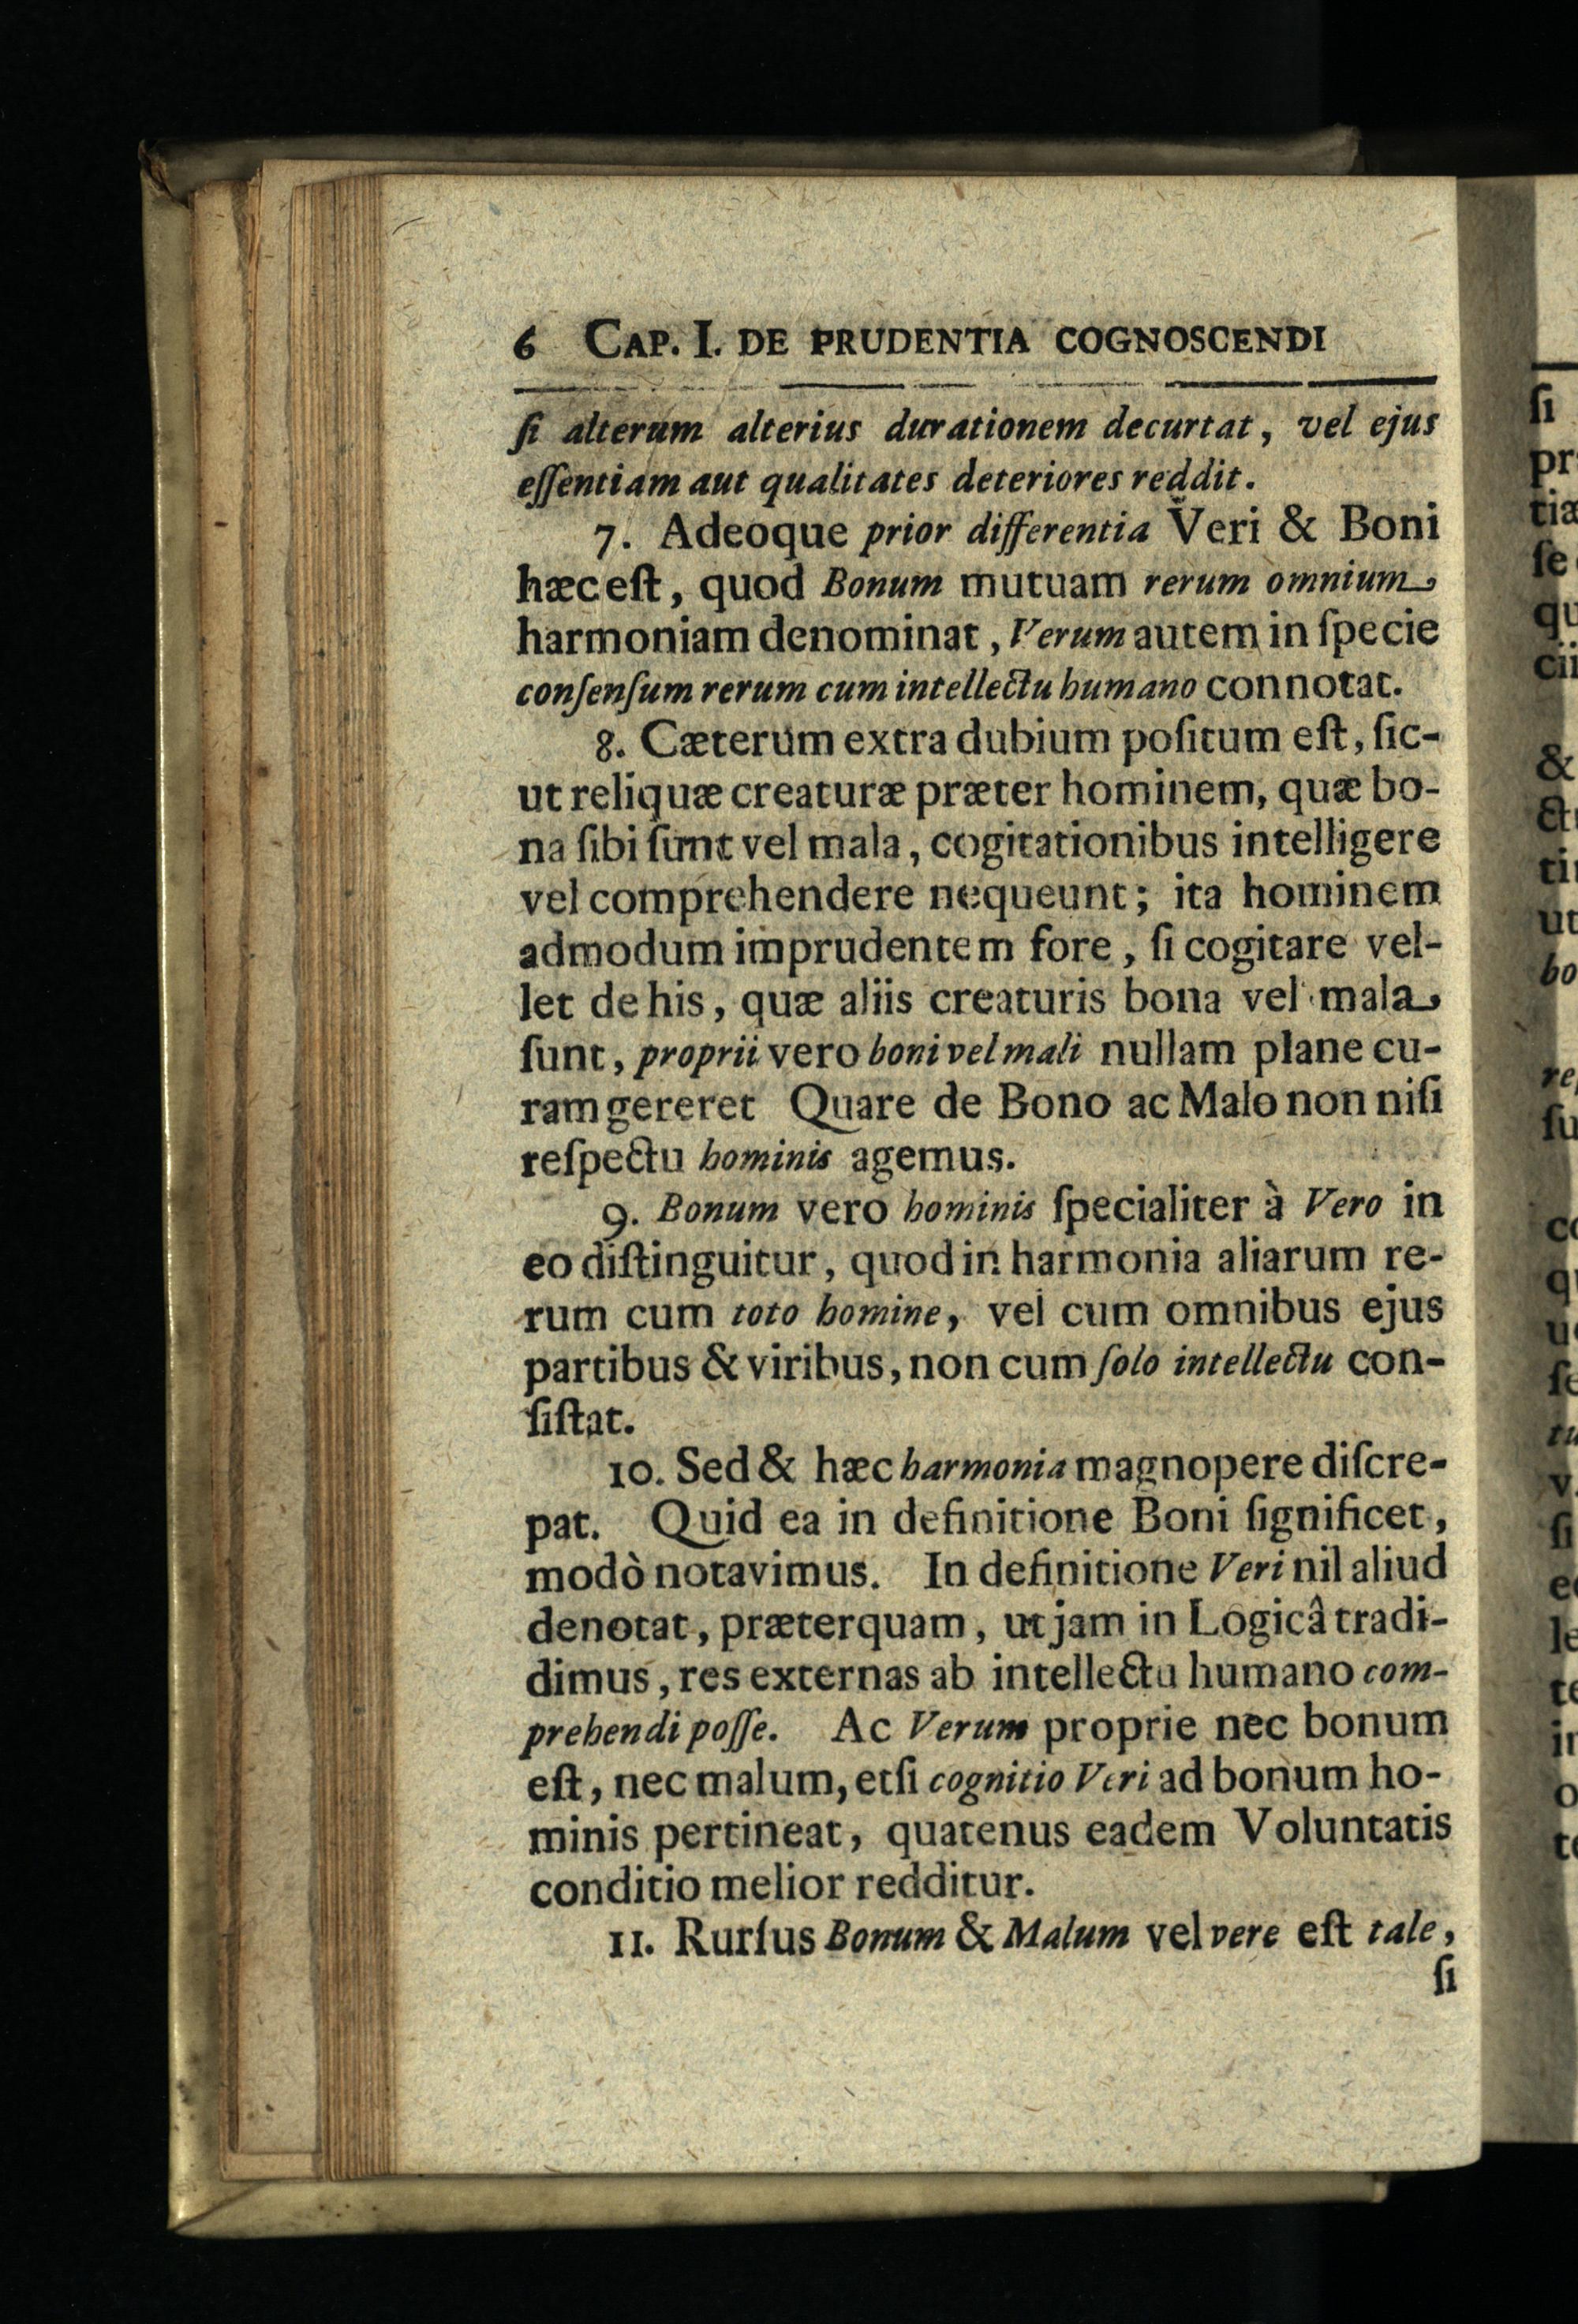 6 CAP. I. DE PRUDENTIA COGNOSCENDI
ſi alterum alterius durationem decurtat, vel ejus
eſſentiam aut qualitates deteriores reddit.
7. Adeoque prior differentia Veri & Boni
hæc eſt, quod Bonum mutuam rerum omnium
harmoniam denominat, Verum autem in ſpecie
conſenſum rerum cum intellectu humano connotat.
8. Cæterum extra dubium poſitum eſt, ſic-
ut reliquæ creaturæ præter hominem, quæ bo-
na ſibi ſunt vel mala, cogitationibus intelligere
vel comprehendere nequeunt; ita hominem
admodum imprudentem fore, ſi cogitare vel-
let de his, quæ aliis creaturis bona vel mala
ſunt, proprii vero boni vel mali nullam plane cu-
ram gereret Quare de Bono ac Malo non niſi
reſpectu hominis agemus.
9. Bonum vero hominis ſpecialiter à Vero in
eo diſtinguitur, quod in harmonia aliarum re-
rum cum toto homine, vel cum omnibus ejus
partibus & viribus, non cum ſolo intellectu con-
ſiſtat.
10. Sed & hæc harmonia magnopere diſcre-
pat. Quid ea in definitione Boni ſignificet,
modò notavimus. In definitione Veri nil aliud
denotat, præterquam, ut jam in Logicâ tradi-
dimus, res externas ab intellectu humano com-
prehendi poſſe. Ac Verum proprie nec bonum
eſt, nec malum, etſi cognitio Veri ad bonum ho-
minis pertineat, quatenus eadem Voluntatis
conditio melior redditur.
11. Rurſus Bonum & Malum vel vere eſt tale,
ſi